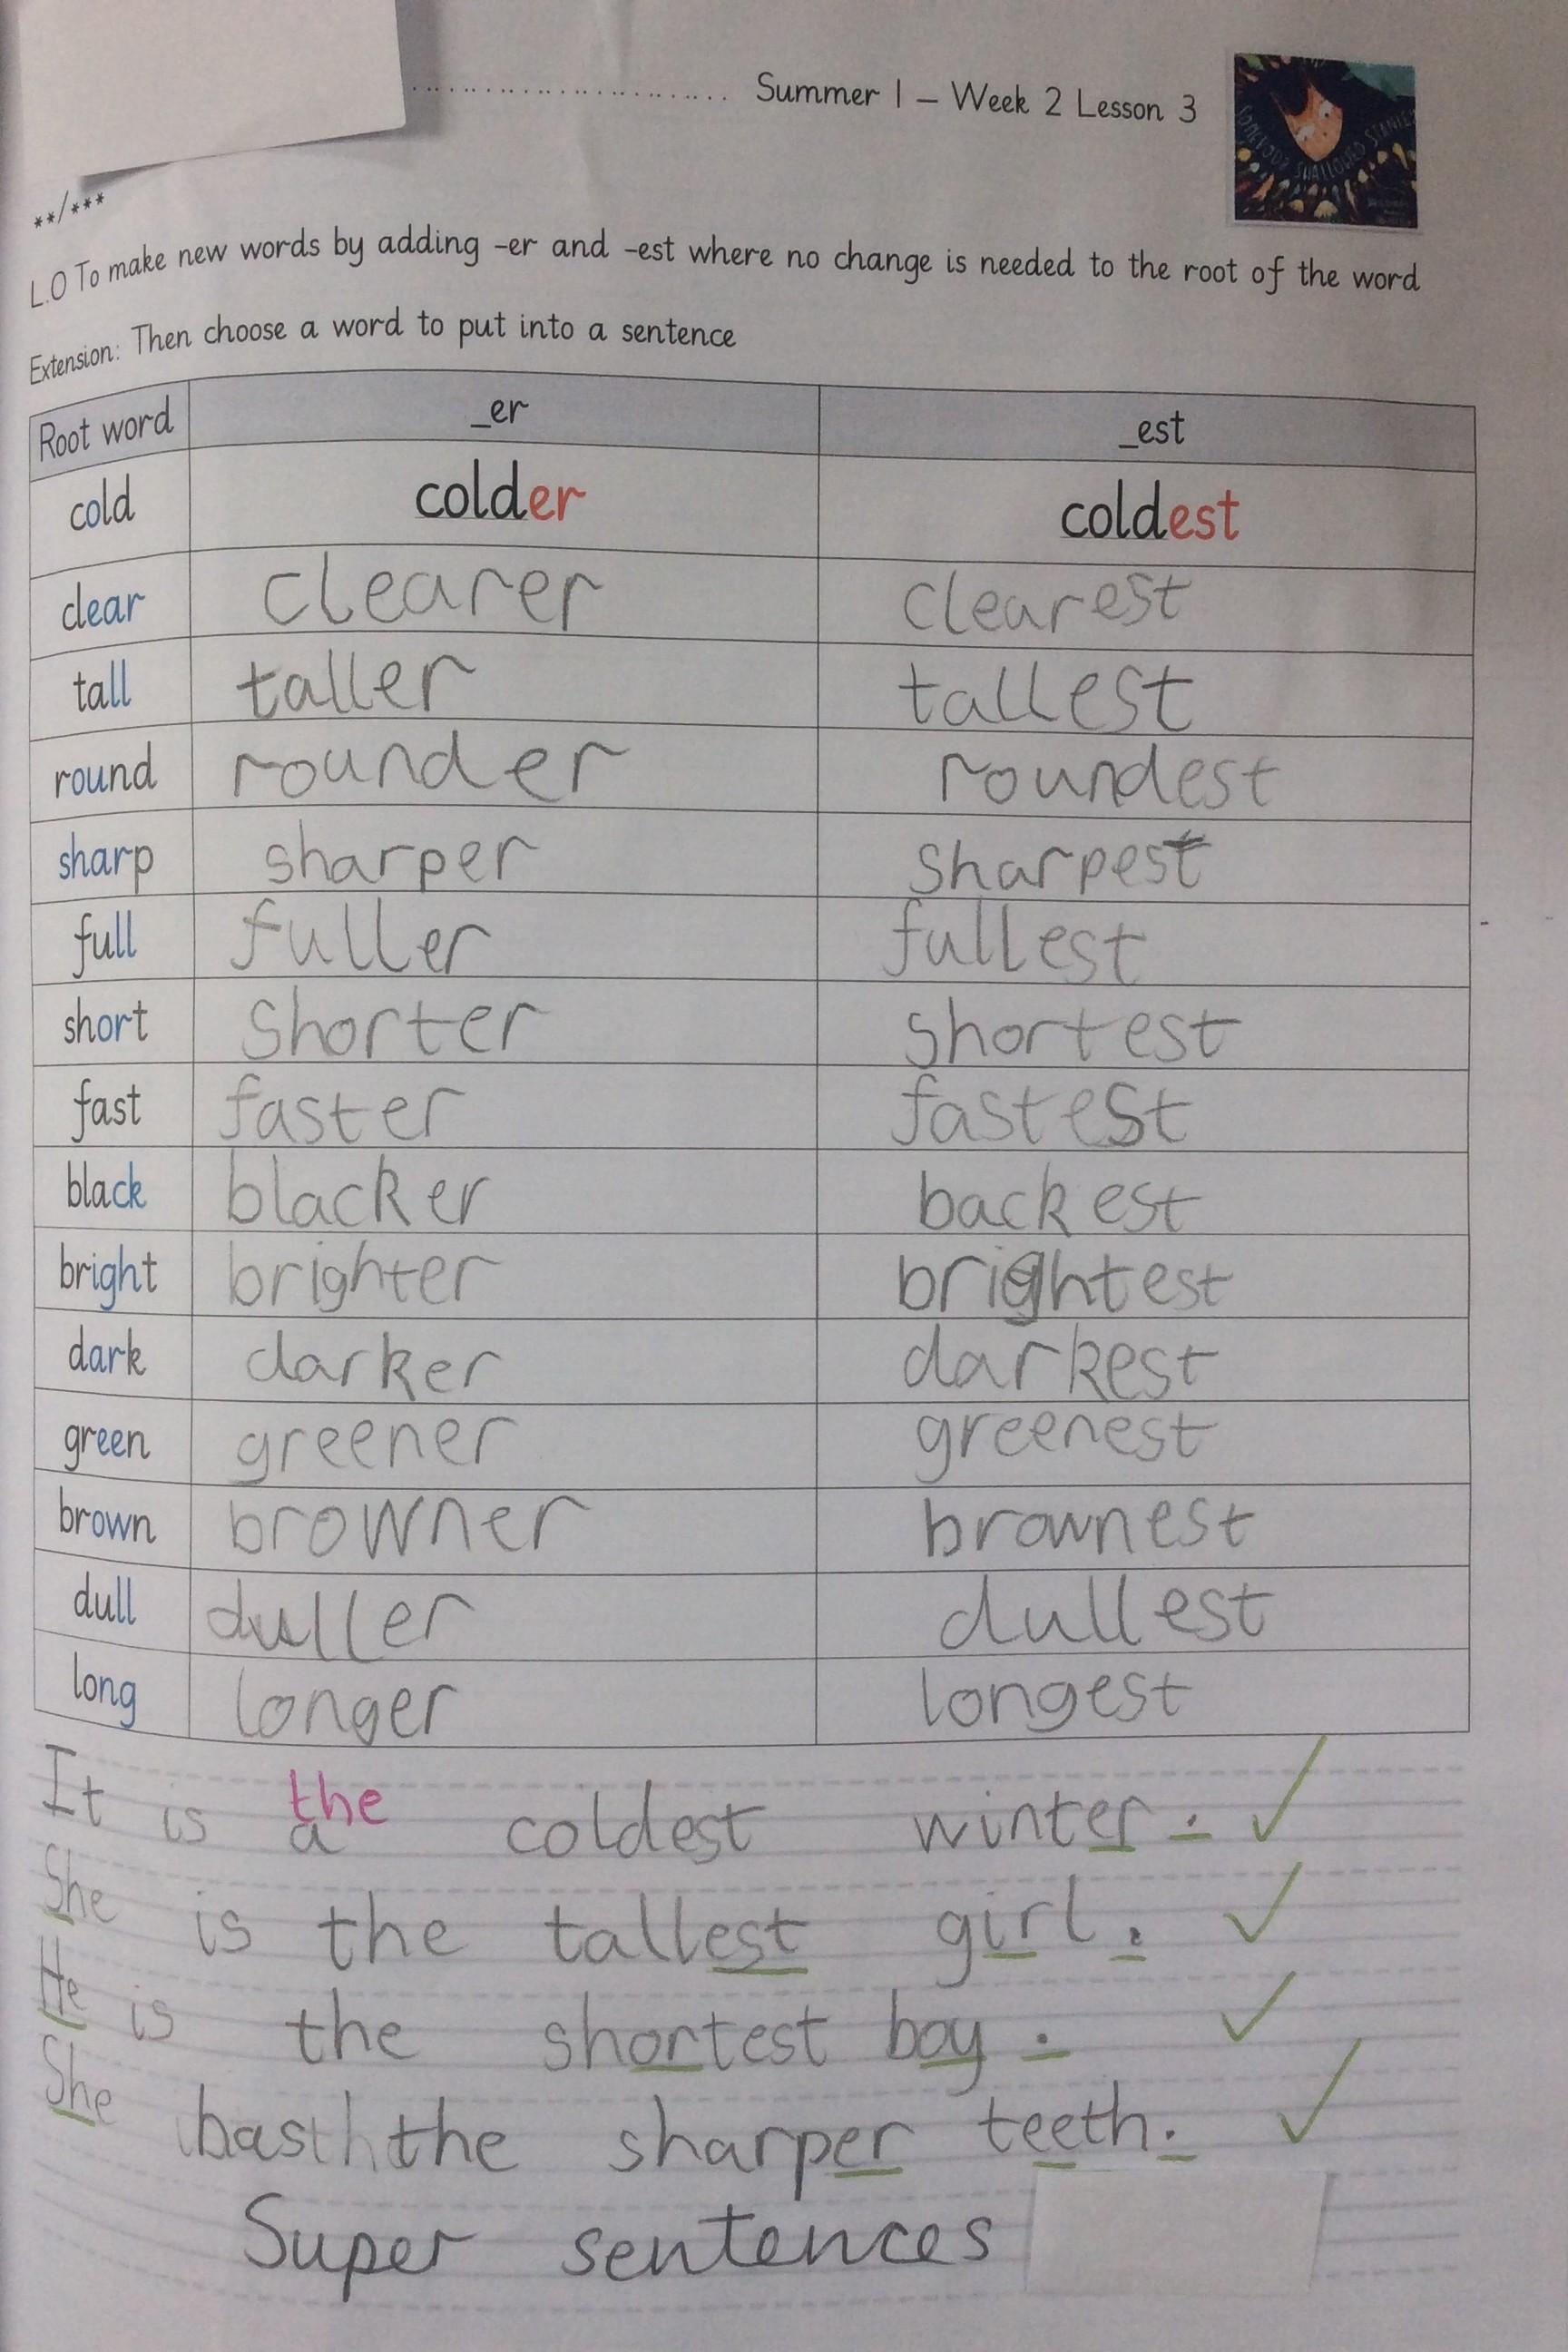 Summer 1 – Week 2 Lesson 3
**/***
L.O To make new words by adding -er and -est where no change is needed to the root of the word
Extension: Then choose a word to put into a sentence
Root word _er _est
cold colder coldest
clear clearer clearest
tall taller tallest
round rounder roundest
sharp sharper sharpest
full fuller fullest
short shorter shortest
fast faster fastest
black blacker backest
bright brighter brightest
dark darker darkest
green greener greenest
brown browner brownest
dull duller dullest
long longer longest
the
It is a coldest winter.
She is the tallest girl.
He is the shortest boy.
She the sharper teeth.
Super sentences